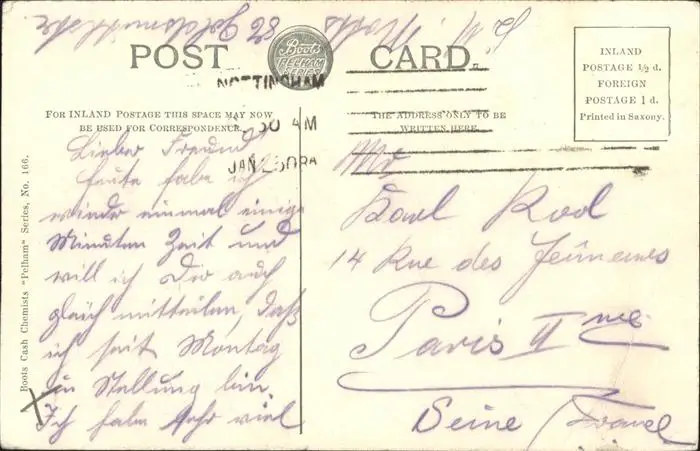 82 Goldsmithstr
POST CARD.
Boots
PELHAM
SERIES
NOTTINGHAM
30 AM
JAN 25 09
INLAND
POSTAGE ½ d.
FOREIGN
POSTAGE 1 d.
Printed in Saxony.
FOR INLAND POSTAGE THIS SPACE MAY NOW
BE USED FOR CORRESPONDENCE.
THE ADDRESS ONLY TO BE
WRITTEN HERE.
Boots Cash Chemists "Pelham" Series, No. 166.
Lieber Freund
Heute habe ich
wieder einmal einige
Minuten Zeit und
will ich Dir auch
gleich mitteilen, daß
ich seit Montag
in Stellung bin.
Ich habe sehr viel
Mr
Karl Rod
14 Rue des Jeûneurs
Paris II me
Seine